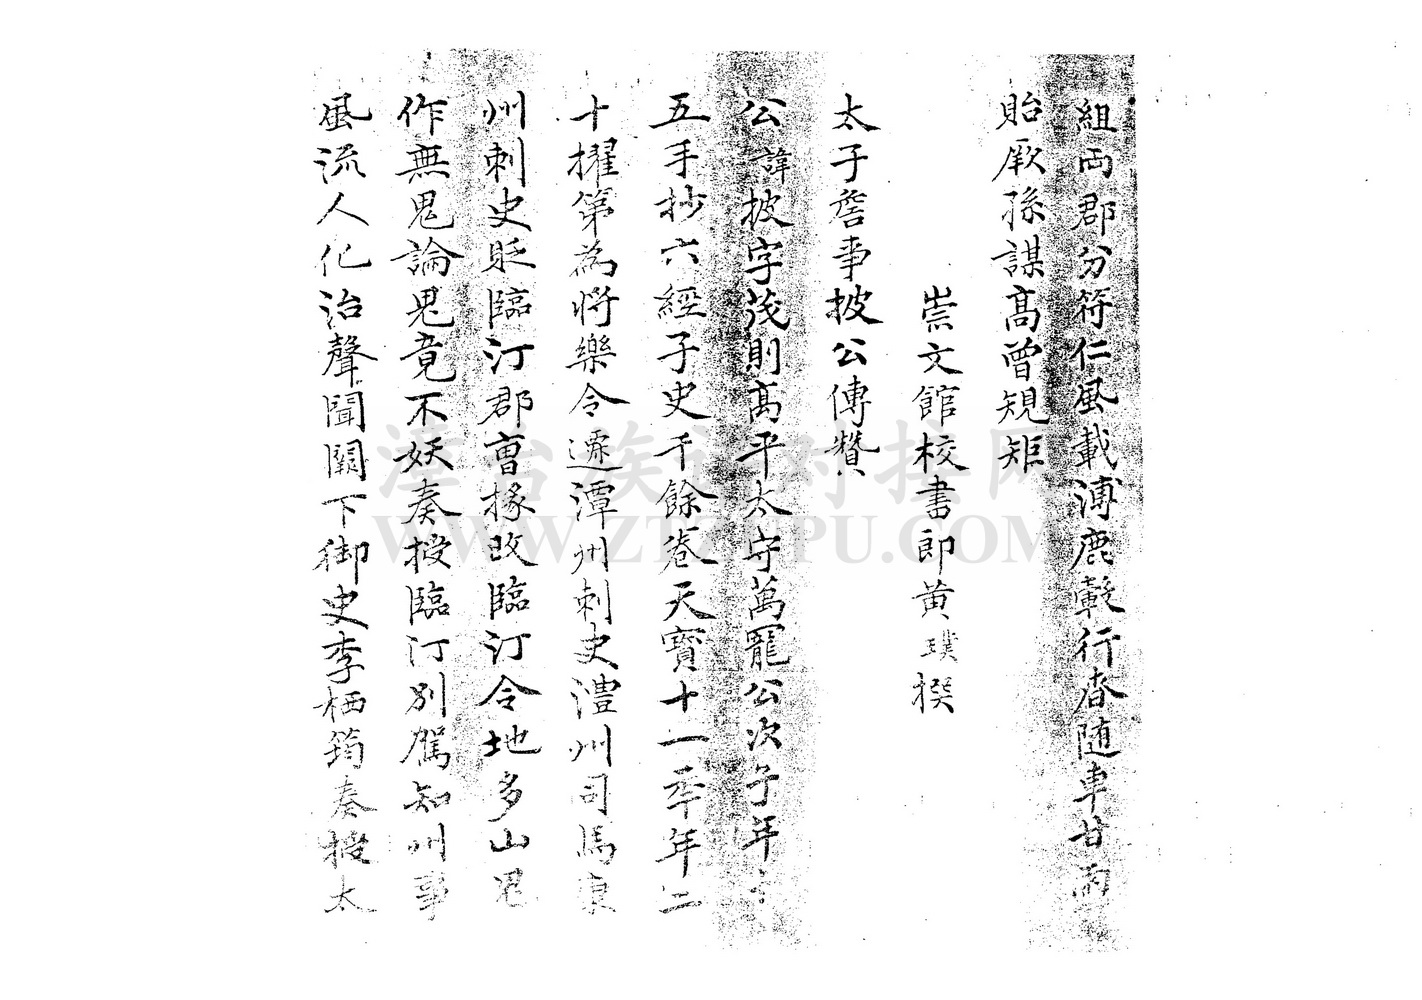 組両郡分符仁風載溥鹿轂行春随車甘雨
貽厥孫謀高曾規矩
崇文館校書郎黄璞撰
太子詹事披公傳贊
公諱披字茂則高平太守萬寵公次子年十
五手抄六經子史千餘卷天寶十一季年二
十擢第為將樂令遷潭州刺史澧州司馬康
州刺史貶臨汀郡曹掾改臨汀令地多山鬼
作無鬼論鬼竟不妖奏授臨汀别駕知州事
風流人化治聲聞闕下御史李栖筠奏授太
陸台族谱对接网
WWW.ZTZUPU.COM